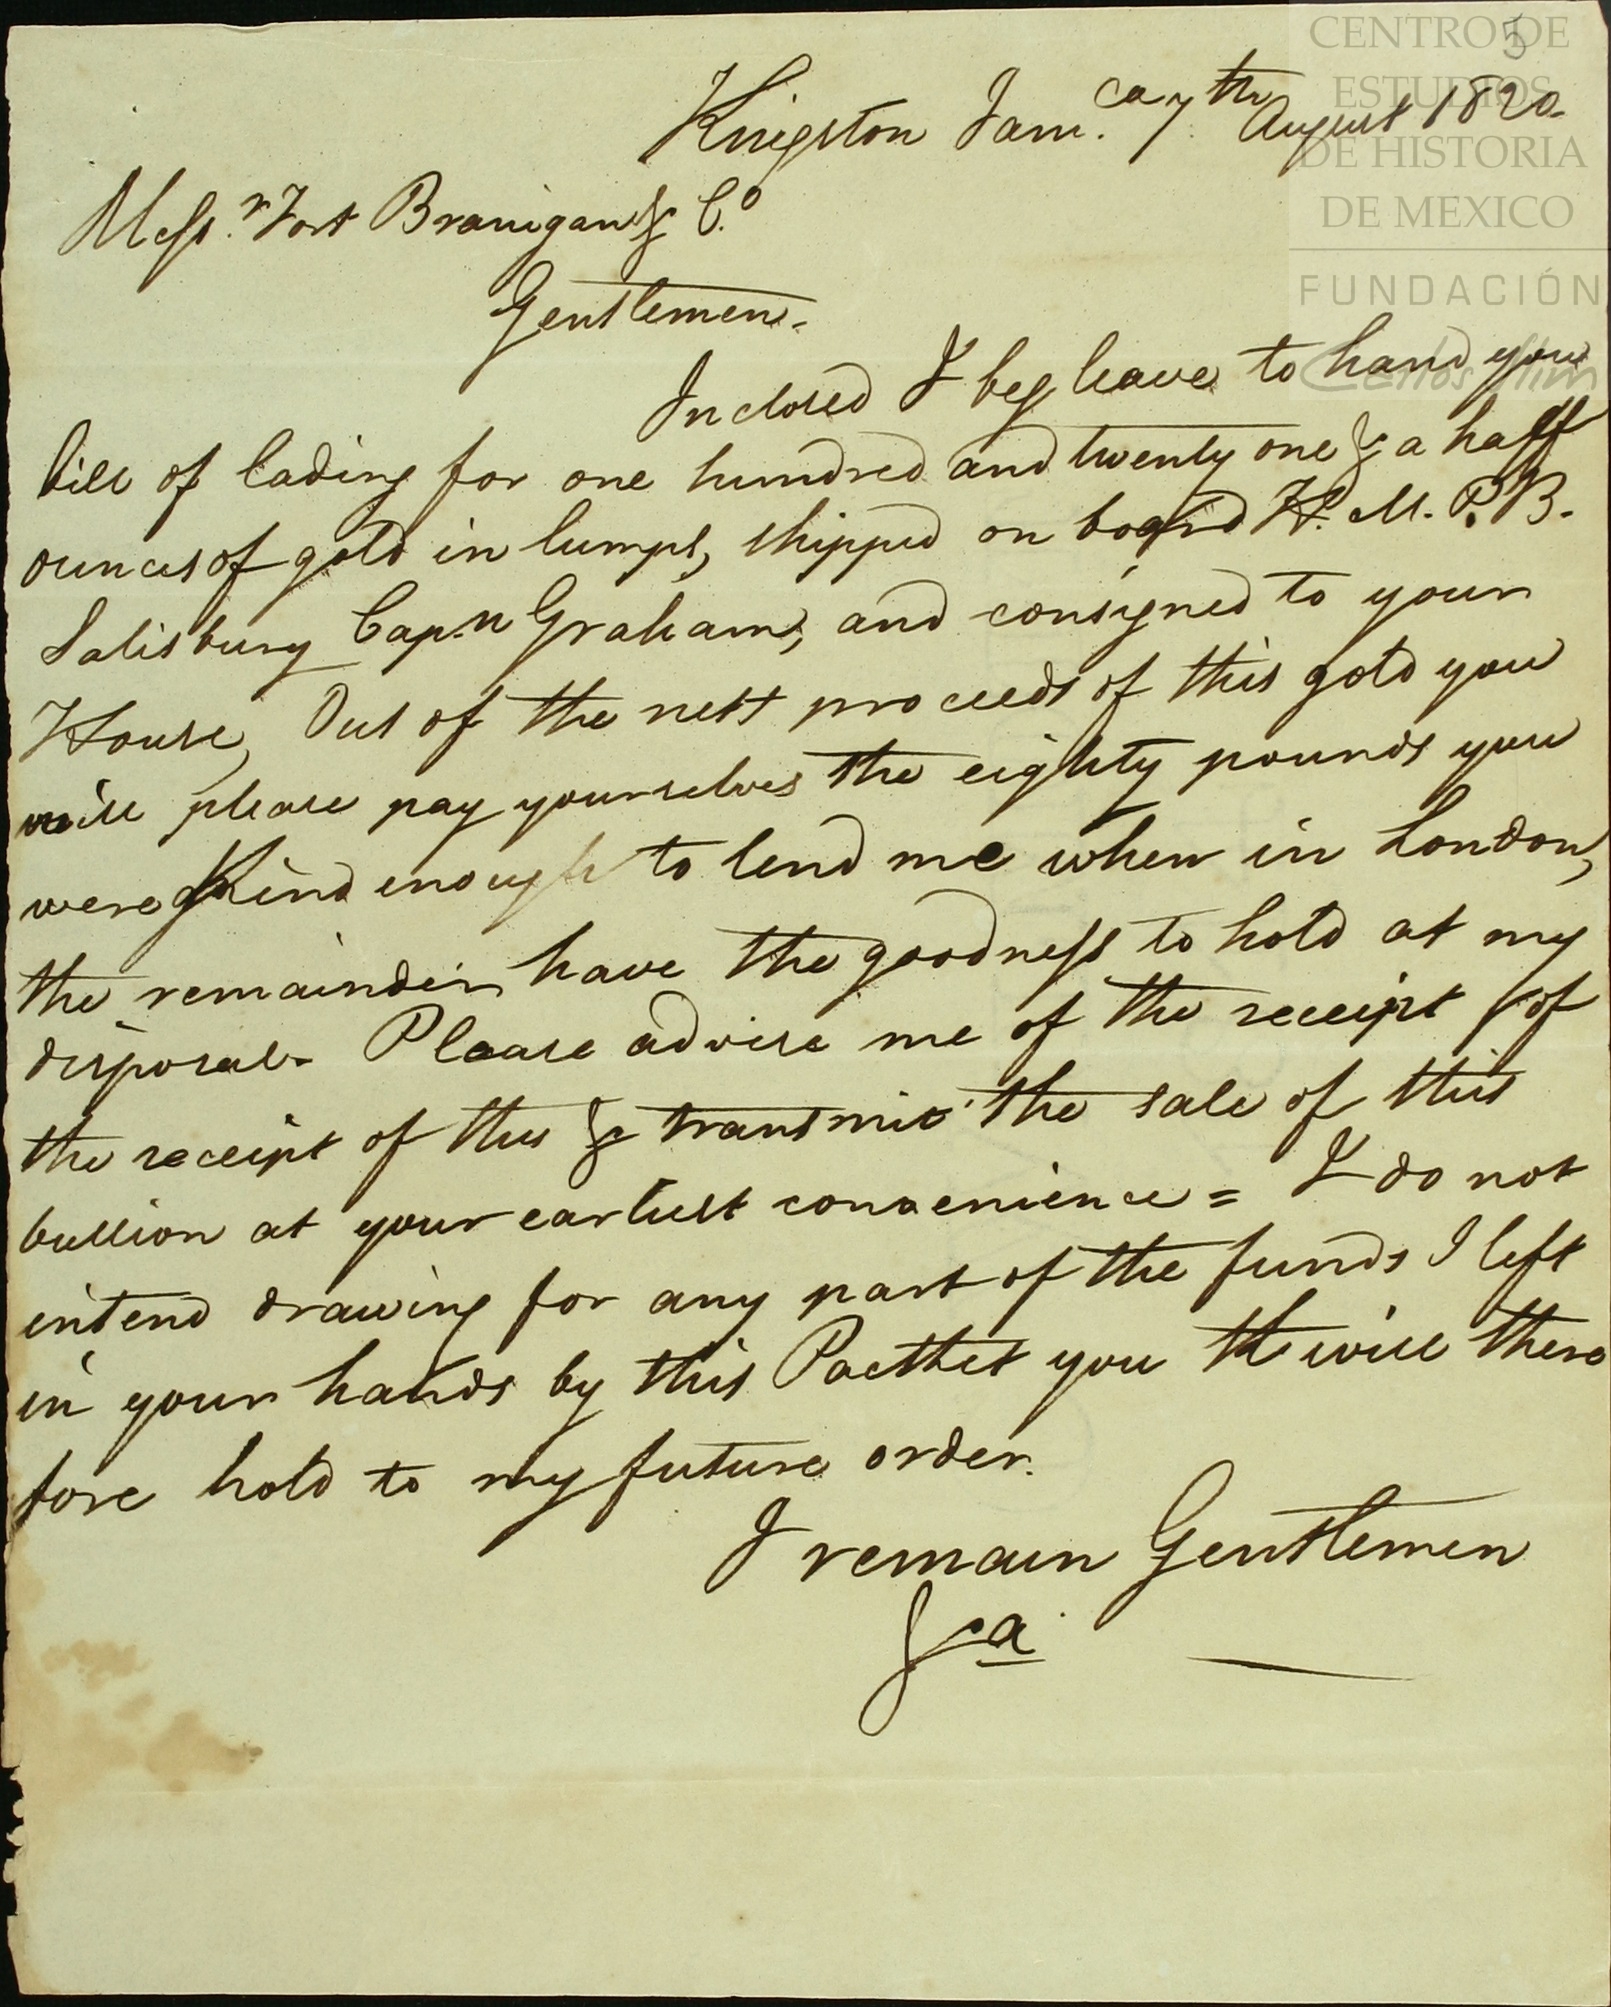 5
CENTRO DE
ESTUDIOS
DE HISTORIA
DE MEXICO
FUNDACIÓN
Carlos Slim
Kingston Jam.ca 7th August 1820.
Messr. Fort Branigan & Co.
Gentlemen.
Inclosed I beg leave to hand you
bill of lading for one hundred and twenty one & a half
ounces of gold in lumps, shipped on board H. M. P. B.
Salisbury Cap.n Graham, and consigned to your
House, Out of the nett proceeds of this gold you
will please pay yourselves the eighty pounds you
were kind enough to lend me when in London,
the remainder have the goodness to hold at my
disposal. Please advise me of the receipt of
the receipt of this & transmit the sale of this
bullion at your earliest convenience = I do not
intend drawing for any part of the funds I left
in your hands by this Packet you th will there
fore hold to my future order.
I remain Gentlemen
&ca